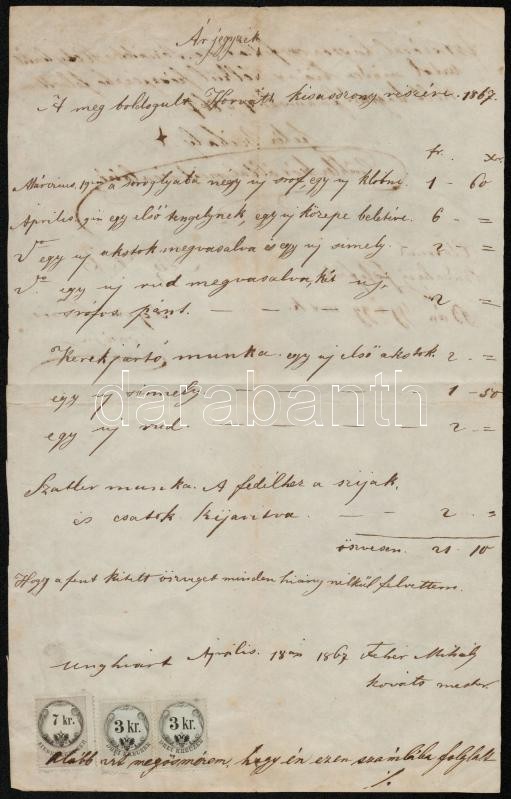 Ár jegyzék
A meg boldogult Horváth kisasszony részére. 1867.
fr. xr.
Március, a saroglyába négy új srof, egy új klobni 1 - 60
Április egy első tengelynek, egy új közepe beletéve. 6 - =
egy új akstok megvasalva és egy új simely. 2 - =
egy új rud megvasalva, két új,
srófos pánt. — — — 2 - =
Kerekjártó munka. egy új első akstok. 2 - =
egy új simmely — — — 1 - 50
egy új rud — — — 2 - =
Szatler munka. A fedélhez a szíjak,
és csatok kijavitva — — 2 - =
öszvesen. 21 10
Hogy a fent kitett öszveget minden hiány nélkül felvettem.
Unghvárt Április. 18án 1867 Fehér Mihály
kováts mester.
7 kr.
3 kr.
DREI KREUZER
3 kr.
DREI KREUZER
Alább irt megösmérem, hogy én ezen számlába foglalt
./.
darabanth